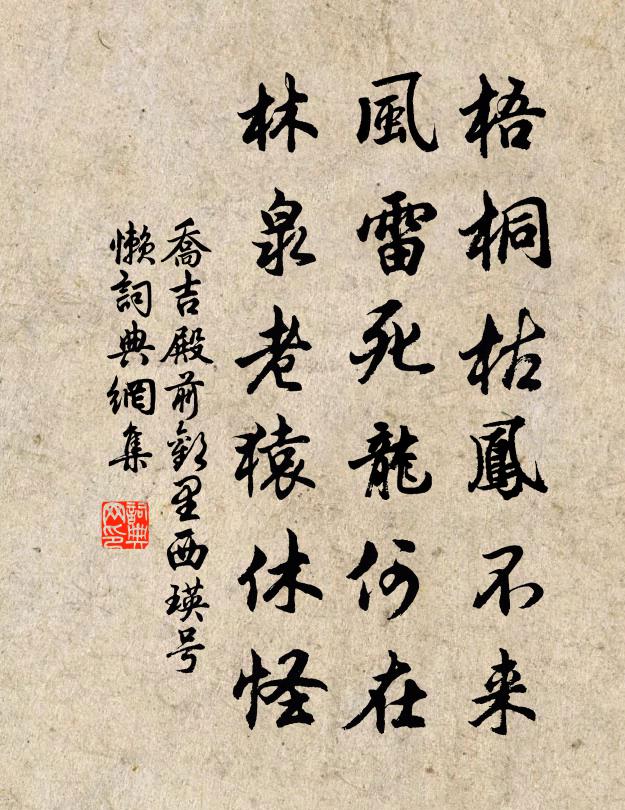 梧桐枯鳳不来
風雷死龍何在
林泉老猿休怪
喬吉殿前歡里西瑛号
懶詞典網集
詞典
网印